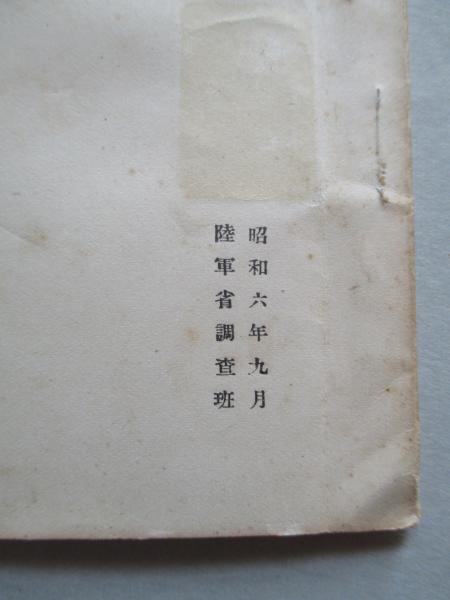 昭和六年九月
陸軍省調査班